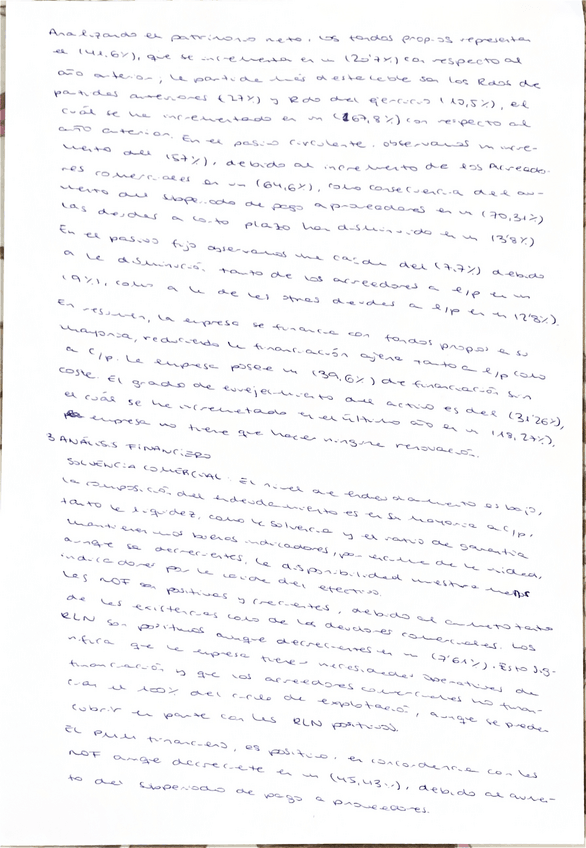 Analizando el patrimonio neto, los fondos propios representan
el (41.6%), que se incrementa en un (20'7%) con respecto al
año anterior, la partida más destacable son los Rdos de
partidas anteriores (27%) y Rdo del ejercicio (13,5%), el
cuál se ha incrementado en un (167,8%) con respecto al
año anterior. En el pasivo circulante, observamos un incre-
mento del 157%), debido al incremento de los Acreedo-
res comerciales en un (64,6%), como consecuencia del au-
mento del subperiodo de pago a proveedores en un (70,31%)
las deudas a corto plazo han disminuido en un (3'8%)
En el pasivo fijo observamos una caída del (7.7%) debido
a la disminución tanto de los acreedores a l/p en un
19%), como a la de las otras deudas a l/p en un (2'8%).
En resumen, la empresa se financia con fondos propios en su
mayoría, reduciendo la financiación ajena tanto a l/p como
a c/p. La empresa posee un (39,6%) de financiación sin
coste. El grado de envejecimiento del activo es del (31'26%),
el cuál se ha incrementado en el último año en un (18,27%),
empresa no tiene que hacer ninguna renovación.
3 ANÁLISIS FINANCIERO
SOLVENCIA COMERCIAL: El nivel de endeudamiento es bajo,
la composición del endeudamiento es en su mayoría a c/p,
tanto la liquidez, como la solvencia y el ratio de garantía
mantienen unos buenos indicadores, por encima de la unidad,
aunque son decrecientes, la disponibilidad muestra menos
indicadores por la caída del efectivo.
Las NOF son positivas y crecientes, debido al aumento tanto
de las existencias como de los deudores comerciales. Los
RLN son positivos aunque decrecientes en un (7'61%). Esto sig-
nifica que la empresa tiene necesidades operativas de
financiación y que los acreedores comerciales no finan-
cian el 100% del ciclo de explotación, aunque se pueden
cubrir en parte con los RLN positivos.
El financiero, es positivo, en concordancia con las
NOF aunque decreciente en un (45,43%), debido al aumen-
to del subperiodo de pago a proveedores.